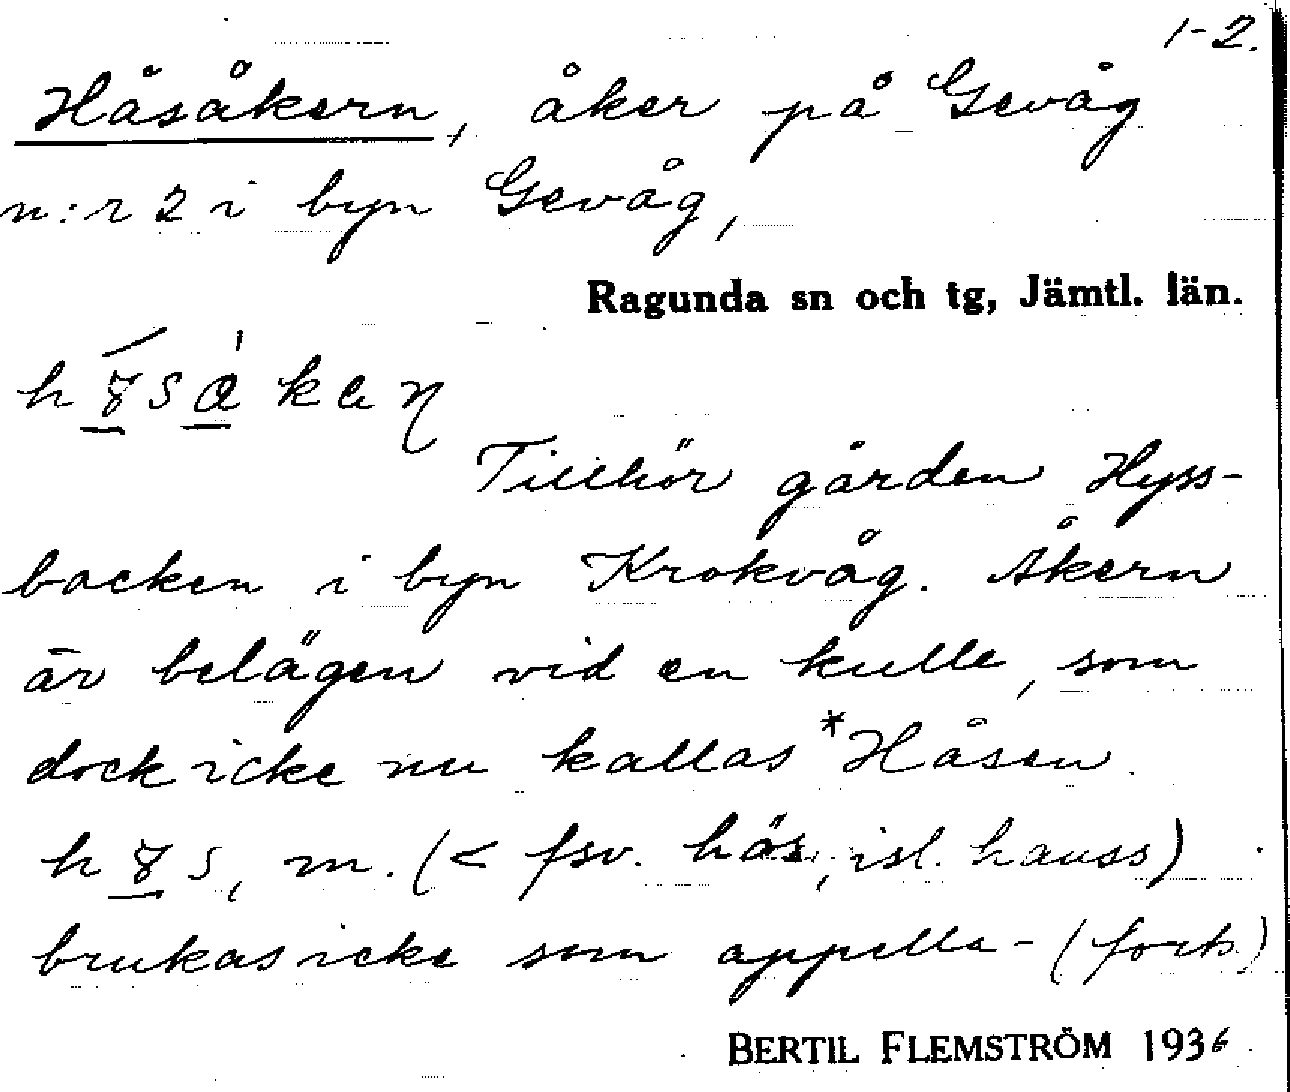 1-2.
Håsåkern, åker på Gevåg
n:r 2 i byn Gevåg,
Ragunda sn och tg, Jämtl. län.
Tillhör gården Hyss-
backen i byn Krokvåg. Åkern
är belägen vid en kulle, som
dock icke nu kallas *Håsen.
m. (< fsv. hös, isl. hauss)
brukas icke som appella- (forts.)
BERTIL FLEMSTRÖM 1936